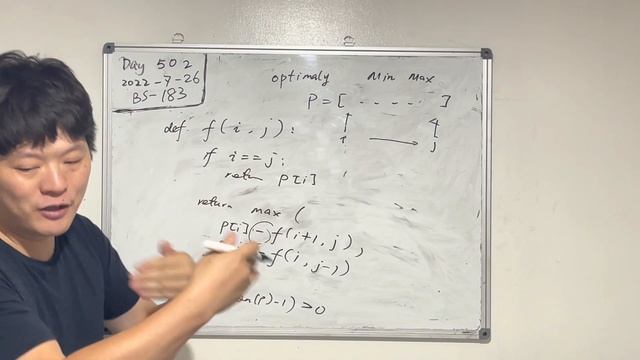 Day 502
2022-7-26
BS-183
optimaly Min Max
P = [ ..... ]
def f(i, j):
i → j
if i == j:
return P[i]
return max(
P[i] - f(i+1, j),
f(i, j-1)
(P)-1) > 0